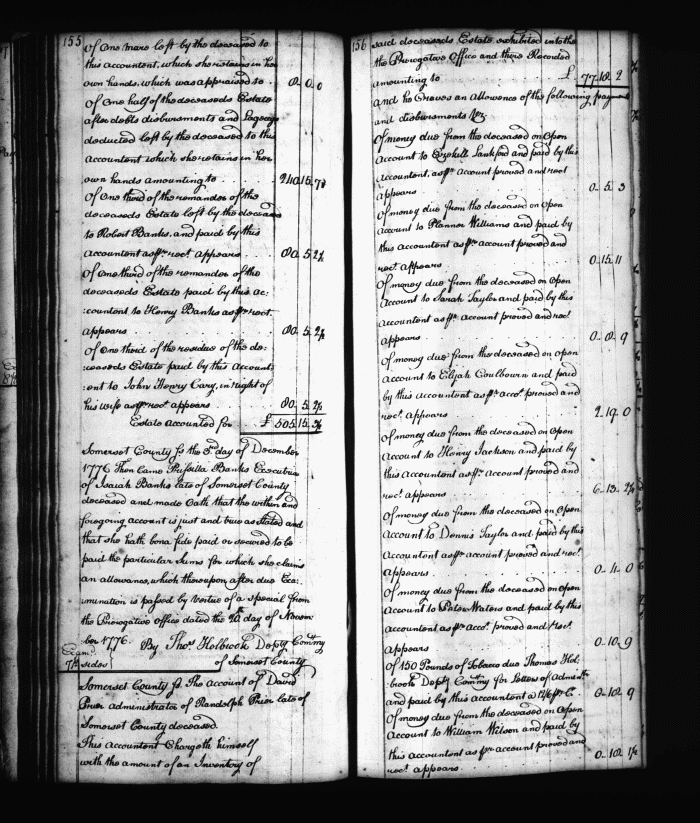 155
of One mare left by the deceased to
this accountant, which she retains in her
own hands, which was appraised to . . 8. 0. 0
of One half of the deceaseds Estate
after debts disbursments and Legacys
deducted left by the deceased to this
Accountant which she retains in her
own hands amounting to . . 240. 15. 7
of One third of the remander of the
deceaseds Estate left by the deceased
to Robert Banks, and paid by this
accountant as pr. rect. appears . . 80. 5. 2½
of One third of the remander of the
deceaseds Estate paid by this Ac:
:countant to Henry Banks as pr. rect.
appears . . 80. 5. 2½
of One third of the residue of the de:
:ceaseds Estate paid by this Account:
:ent to John Henry Cary, in right of
his wife as pr. rect. appears . . 80. 5. 2½
Estate Accounted for £ 505. 15. 3½
Somerset County ss. the 3rd day of December
1776 Then Came Prissilla Banks Executrix
of Isaiah Banks late of Somerset County
deceased and made Oath that the within and
foregoing account is just and true as stated and
that she hath bona fide paid or secured to be
paid the particular Sums for which she claims
an allowance, which thereupon after due Exa:
:mination is passed by Vertue of a special from
the Prerogative office dated the day of Novem
ber 1776. By Thos. Holbrook Depty Commy
of Somerset County
Exam.
7½ sides
Somerset County ss. The Account of David
Prior administrator of Randolph Prior late of
Somerset County deceased.
This Accountant Chargeth himself
with the amount of an Inventory of
156
said deceaseds Estate exhibited into the
the Prerogative Office and there Recorded
amounting to . . £ 77. 18. 2
and he Craves an allowance of the following payments
and disbursments Viz.
Of money due from the deceased on Open
Account to Ezekiell Lankford and paid by this
accountant, as pr. account proved and rect.
appears . . 0. 5. 3
of money due from the deceased on Open
account to Planner Williams and paid by
this accountant as pr. account proved and
rect. appears . . 0. 15. 11
of money due from the deceased on Open
Account to Sarah Taylor and paid by this
Accountant as pr. Account proved and rect.
appears . . 0. 8. 9
of money due from the deceased on Open
account to Elijah Coulbourn and paid
by this accountant as pr. acco. proved and
rect. appears . . 2. 19. 0
of money due from the deceased on Open
account to Henry Jackson and paid by
this Accountant as pr. Account proved and
rect. appears . . 6. 13. 2½
of money due from the deceased on Open
Account to Dennis Taylor and paid by this
Accountant as pr. account proved and rect.
appears . . 0. 4. 0
of money due from the deceased on Open
account to Peter Waters and paid by this
accountant as pr. acco. proved and rect.
appears . . 0. 10. 9
of 150 Pounds of Tobacco due Thomas Hol:
:brook Depty Commy for Letters of Admn.
and paid by this accountant @ 12/6 pr. C. . . 0. 18. 9
of money due from the deceased on Open
account to William Wilson and paid by
this accountant as pr. account proved and
rect. appears . . 0. 10. 1½